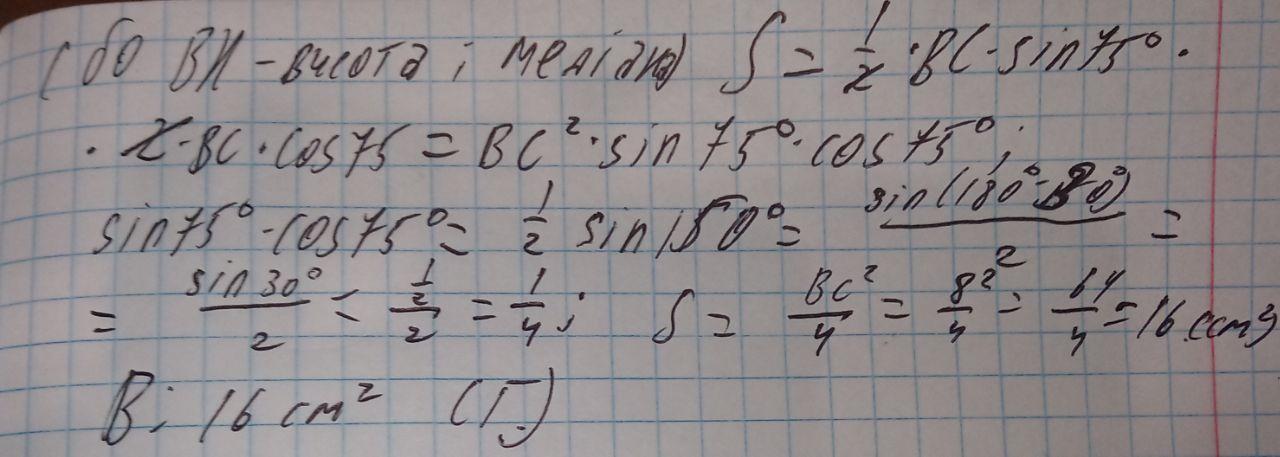 (бо ВН - висота і медіана) S = 1/2 · BC · sin75° ·
· 2 · BC · cos75 = BC² · sin75° · cos75°;
sin75° · cos75° = 1/2 sin150° = sin(180°-30°)/2 =
= sin30°/2 = 1/2/2 = 1/4; S = BC²/4 = 8²/4 = 64/4 = 16 (см²)
В: 16 см² (Г)